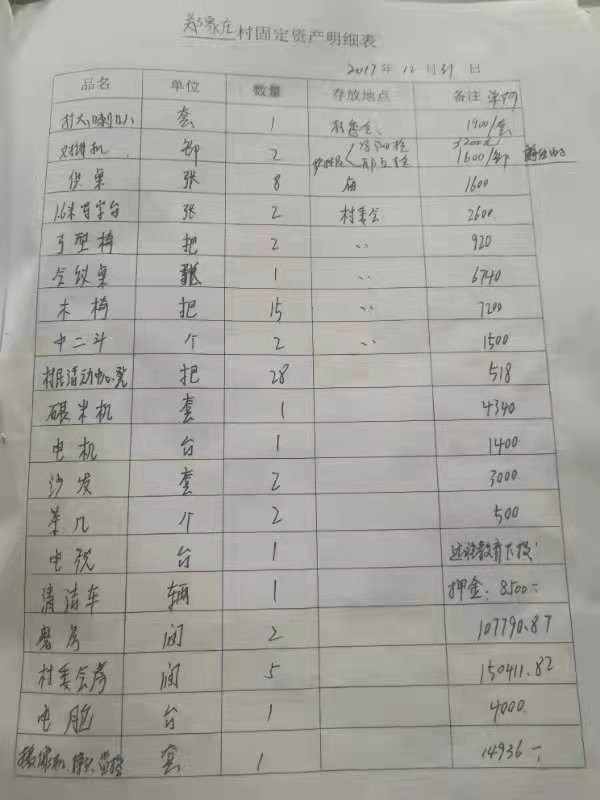 郑家庄村固定资产明细表
2017年12月31日
品名 单位 数量 存放地点 备注 单价
扩大喇叭 套 1 村委会 1900/套
对讲机 部 2 3200元 1600/部
供桌 张 8 庙 1600
1.6米写字台 张 2 村委会 2600
弓型椅 把 2 〃 920
会议桌 张 1 〃 6740
木椅 把 15 〃 7200
中二斗 个 2 〃 1500
村居活动中心凳 把 28 518
碾米机 套 1 4340
电机 台 1 1400
沙发 套 2 3000
茶几 个 2 500
电视 台 1 远程教育下拨
清洁车 辆 1 押金:8500-
磨房 间 2 107790.87
村委会房 间 5 150411.82
电脑 台 1 4000
摄像机. 监控 套 1 14936-